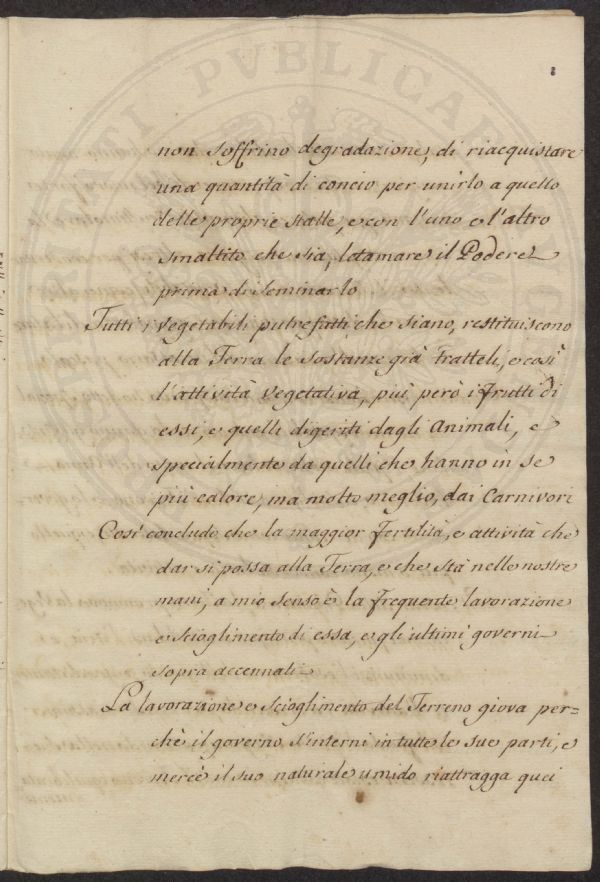 non soffrino degradazione, di riacquistare
una quantità di concio per unirlo a quello
delle proprie stalle, e con l'uno e l'altro
smaltito che sia, letamare il Podere
prima di seminarlo
Tutti i vegetabili putrefatti che siano, restituiscono
alla Terra le sostanze già tratteli, e così
l'attività vegetativa, più però i frutti di
essi, e quelli digeriti dagli Animali, e
specialmente da quelli che hanno in se
più calore, ma molto meglio, dai Carnivori
Così concludo che la maggior fertilità, e attività che
dar si possa alla Terra, e che stà nelle nostre
mani, a mio senso è la frequente lavorazione
e scioglimento di essa, e gli ultimi governi
sopra accennati
La lavorazione e scioglimento del Terreno giova per=
chè il governo s'interni in tutte le sue parti, e
mercè il suo naturale umido riattragga quei